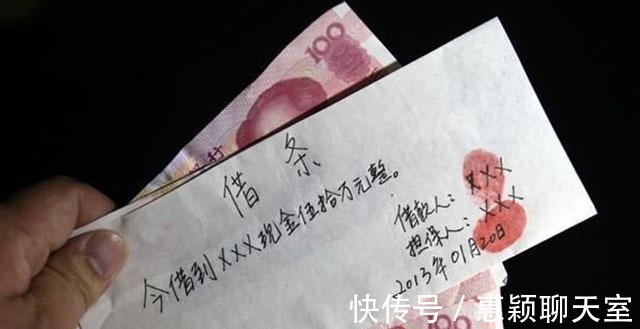 100
借条
今借到XXX现金伍拾万元整。
借款人：XXX
担保人：XXX
2013年01月20日
快传号/惠颖聊天室